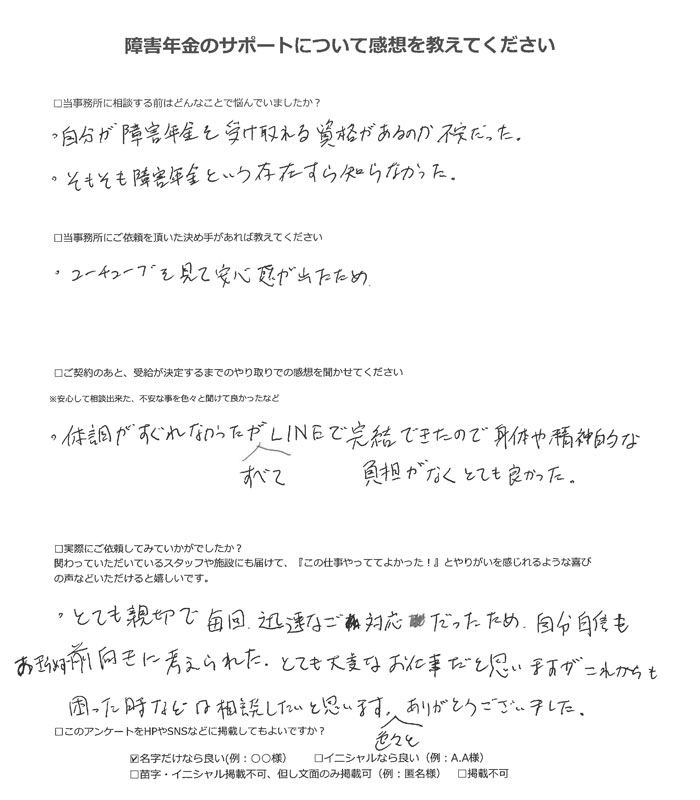 障害年金のサポートについて感想を教えてください
□当事務所に相談する前はどんなことで悩んでいましたか?
・自分が障害年金を受け取れる資格があるのか不安だった。
・そもそも障害年金という存在すら知らなかった。
□当事務所にご依頼を頂いた決め手があれば教えてください
・ユーチューブを見て安心感が出たため.
□ご契約のあと、受給が決定するまでのやり取りでの感想を聞かせてください
※安心して相談出来た、不安な事を色々と聞けて良かったなど
・体調がすぐれなかったがLINEで完結できたので身体や精神的な
すべて
負担がなくとても良かった。
□実際にご依頼してみていかがでしたか?
関わっていただいているスタッフや施設にも届けて、『この仕事やっててよかった!』とやりがいを感じれるような喜び
の声などいただけると嬉しいです。
・とても親切で毎回、迅速なご対応だったため、自分自信も
前向きに考えられた。とても大変なお仕事だと思いますがこれからも
困った時などは相談したいと思います。ありがとうございました。
色々と
□このアンケートをHPやSNSなどに掲載してもよいですか?
☑名字だけなら良い(例:〇〇様) □イニシャルなら良い(例:A.A様)
□苗字・イニシャル掲載不可、但し文面のみ掲載可(例:匿名様) □掲載不可